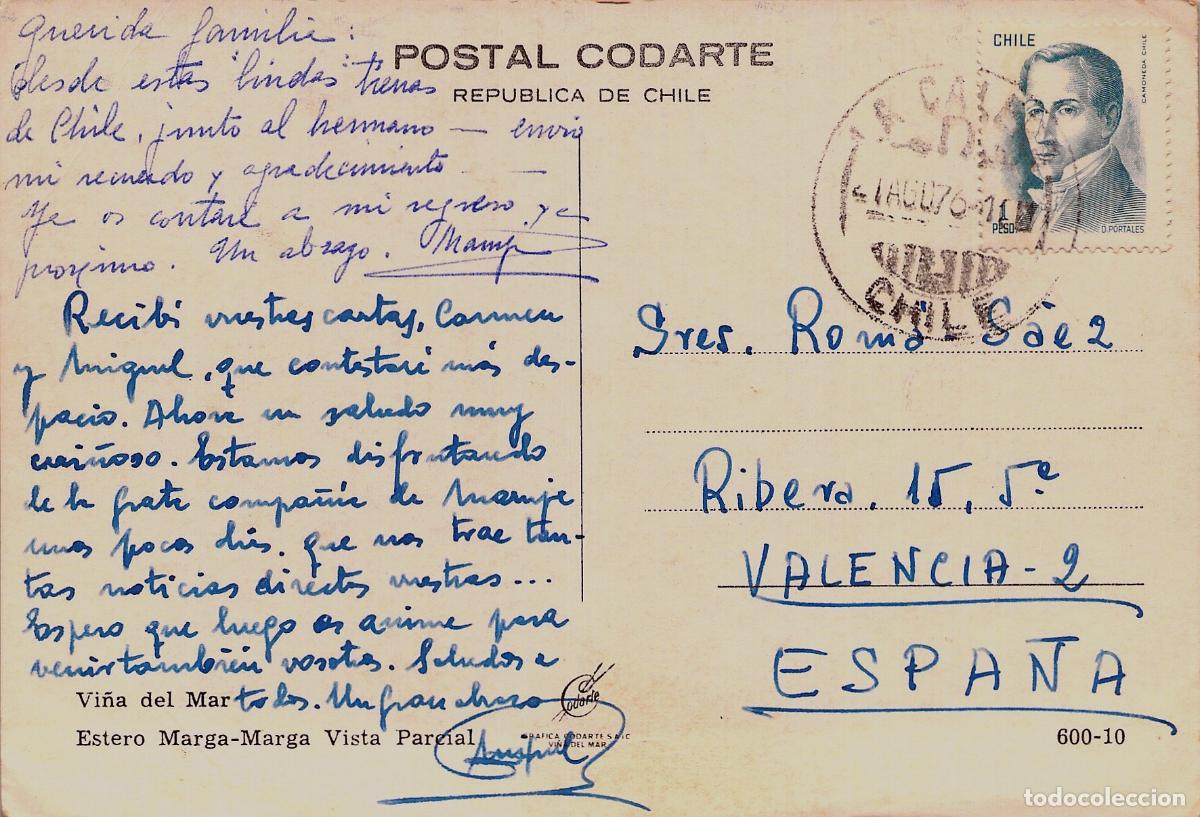 Querida familia:
desde estas "lindas" tierras
de Chile, junto al hermano — envio
mi recuerdo y agradecimiento — —
Ya os contaré a mi regreso ya
proximo. Un abrazo.
Recibí vuestras cartas, Carmen
y Miguel, que contestaré más des-
pacio. Ahora un saludo muy
cariñoso. Estamos disfrutando
de la grata compañía de Maruja
unos pocos días, que nos trae tan-
tas noticias directas vuestras...
Espero que luego os anime para
venir también vosotros. Saludos a
todos. Un gran abrazo
Viña del Mar
Estero Marga-Marga Vista Parcial
Codarte
GRAFICA CODARTE S.A.I.C.
VIÑA DEL MAR
POSTAL CODARTE
REPUBLICA DE CHILE
CHILE
CAMONEDA CHILE
1
PESO
D. PORTALES
AGO76
CHILE
Sres. Romá Sáez
Ribera, 15, 5ª
VALENCIA-2
ESPAÑA
600-10
todocoleccion